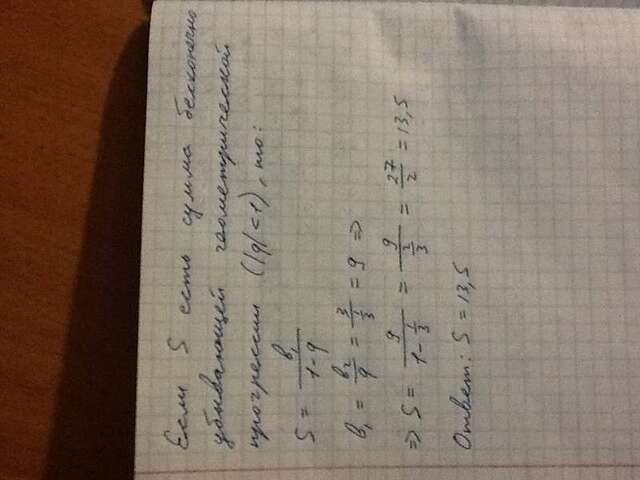 Если S есть сумма бесконечно
убывающей геометрической
прогрессии (|q|<1), то:
S = b₁/(1-q)
b₁ = b₂/q = 3/(1/3) = 9 =>
=> S = 9/(1-1/3) = 9/(2/3) = 27/2 = 13,5
Ответ: S = 13,5